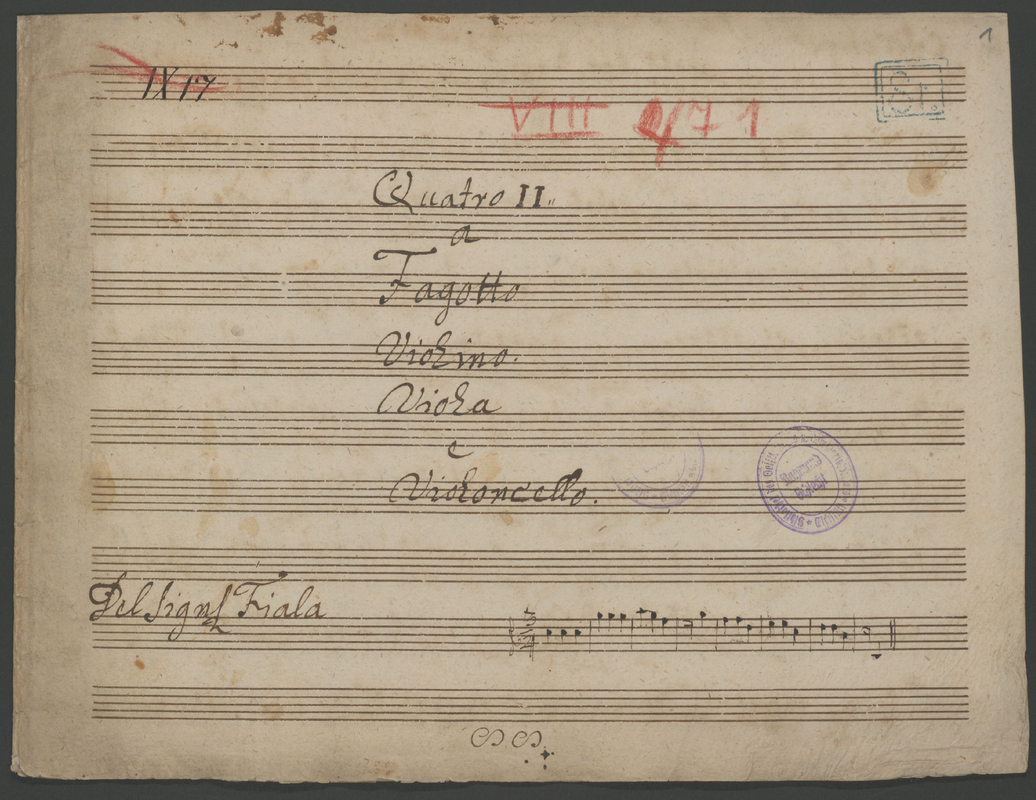 1
IX 17
VIII 1/7 1
St.
Quatro II.
a
Fagotto
Violino.
Viola
e
Violoncello.
Del Sigr Fiala